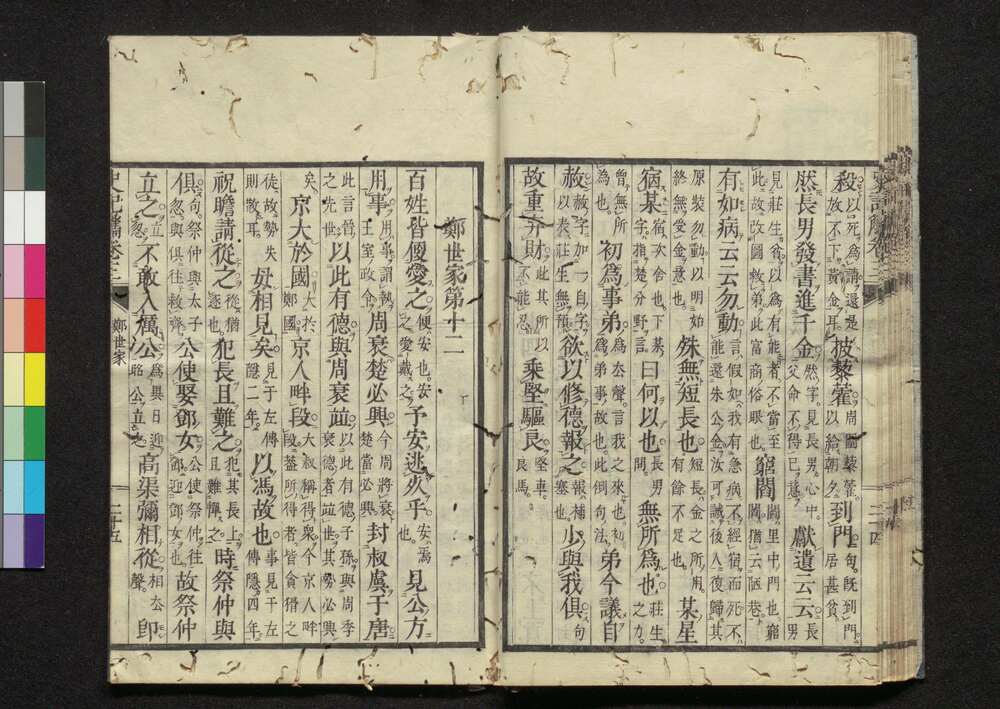 殺以死爲謂還是故不下黃金耳披藜藿藜藿以給朝夕到門句既到門居甚貧
然長男發書進千金然字見長男心中父命不得已意獻遺云云長男
見莊生貧以爲有能者不當至此故改圖救弟此富商俗眼也窮閻閻里中門也窮閻猶云陋巷
有如病云云勿動言假如我有急病不經宿而死不能還朱公金汝可誡後人復歸其
原裝勿動以明始終無受金意也殊無短長也短長金之所用有餘不足也某星
宿某宿次舍也下某字指楚分野言曰何以也長男問無所爲也莊生之力
曾無所爲也初爲事弟爲去聲言我之來也初爲弟事故也此倒句法弟今議自
赦赦字加一自字以表莊生無預欲以修德報之報補塞也少與我俱句
故重弃財此其所以不能忍乘堅驅良堅車良馬
鄭世家第十二
百姓皆便愛之便安也安之愛戴之予安逃死乎安焉也見公方
用事用事謂執王室政令周衰楚必興今周將衰楚當必興封叔虞于唐
此言晉之先世以此有德與周衰並以此有德子孫與周季衰德者並世其勢必興
矣京大於國大於鄭國京人畔段大叔稱得衆今京人畔段蓋所得者皆貪猾之
徒故勢失則散耳毋相見矣見于左傳隱二年以馮故也事見于左傳隱四年
祝瞻請從之從猶逐也犯長且難之犯其長上且難憚之時祭仲與
俱句祭仲與太子忽與俱往救齊公使娶鄧女公使祭仲往鄧迎鄧女也故祭仲
立之立忽不敢入厲公爲異日迎昭公立之高渠彌相從相去聲卽
鄭世家
二十五